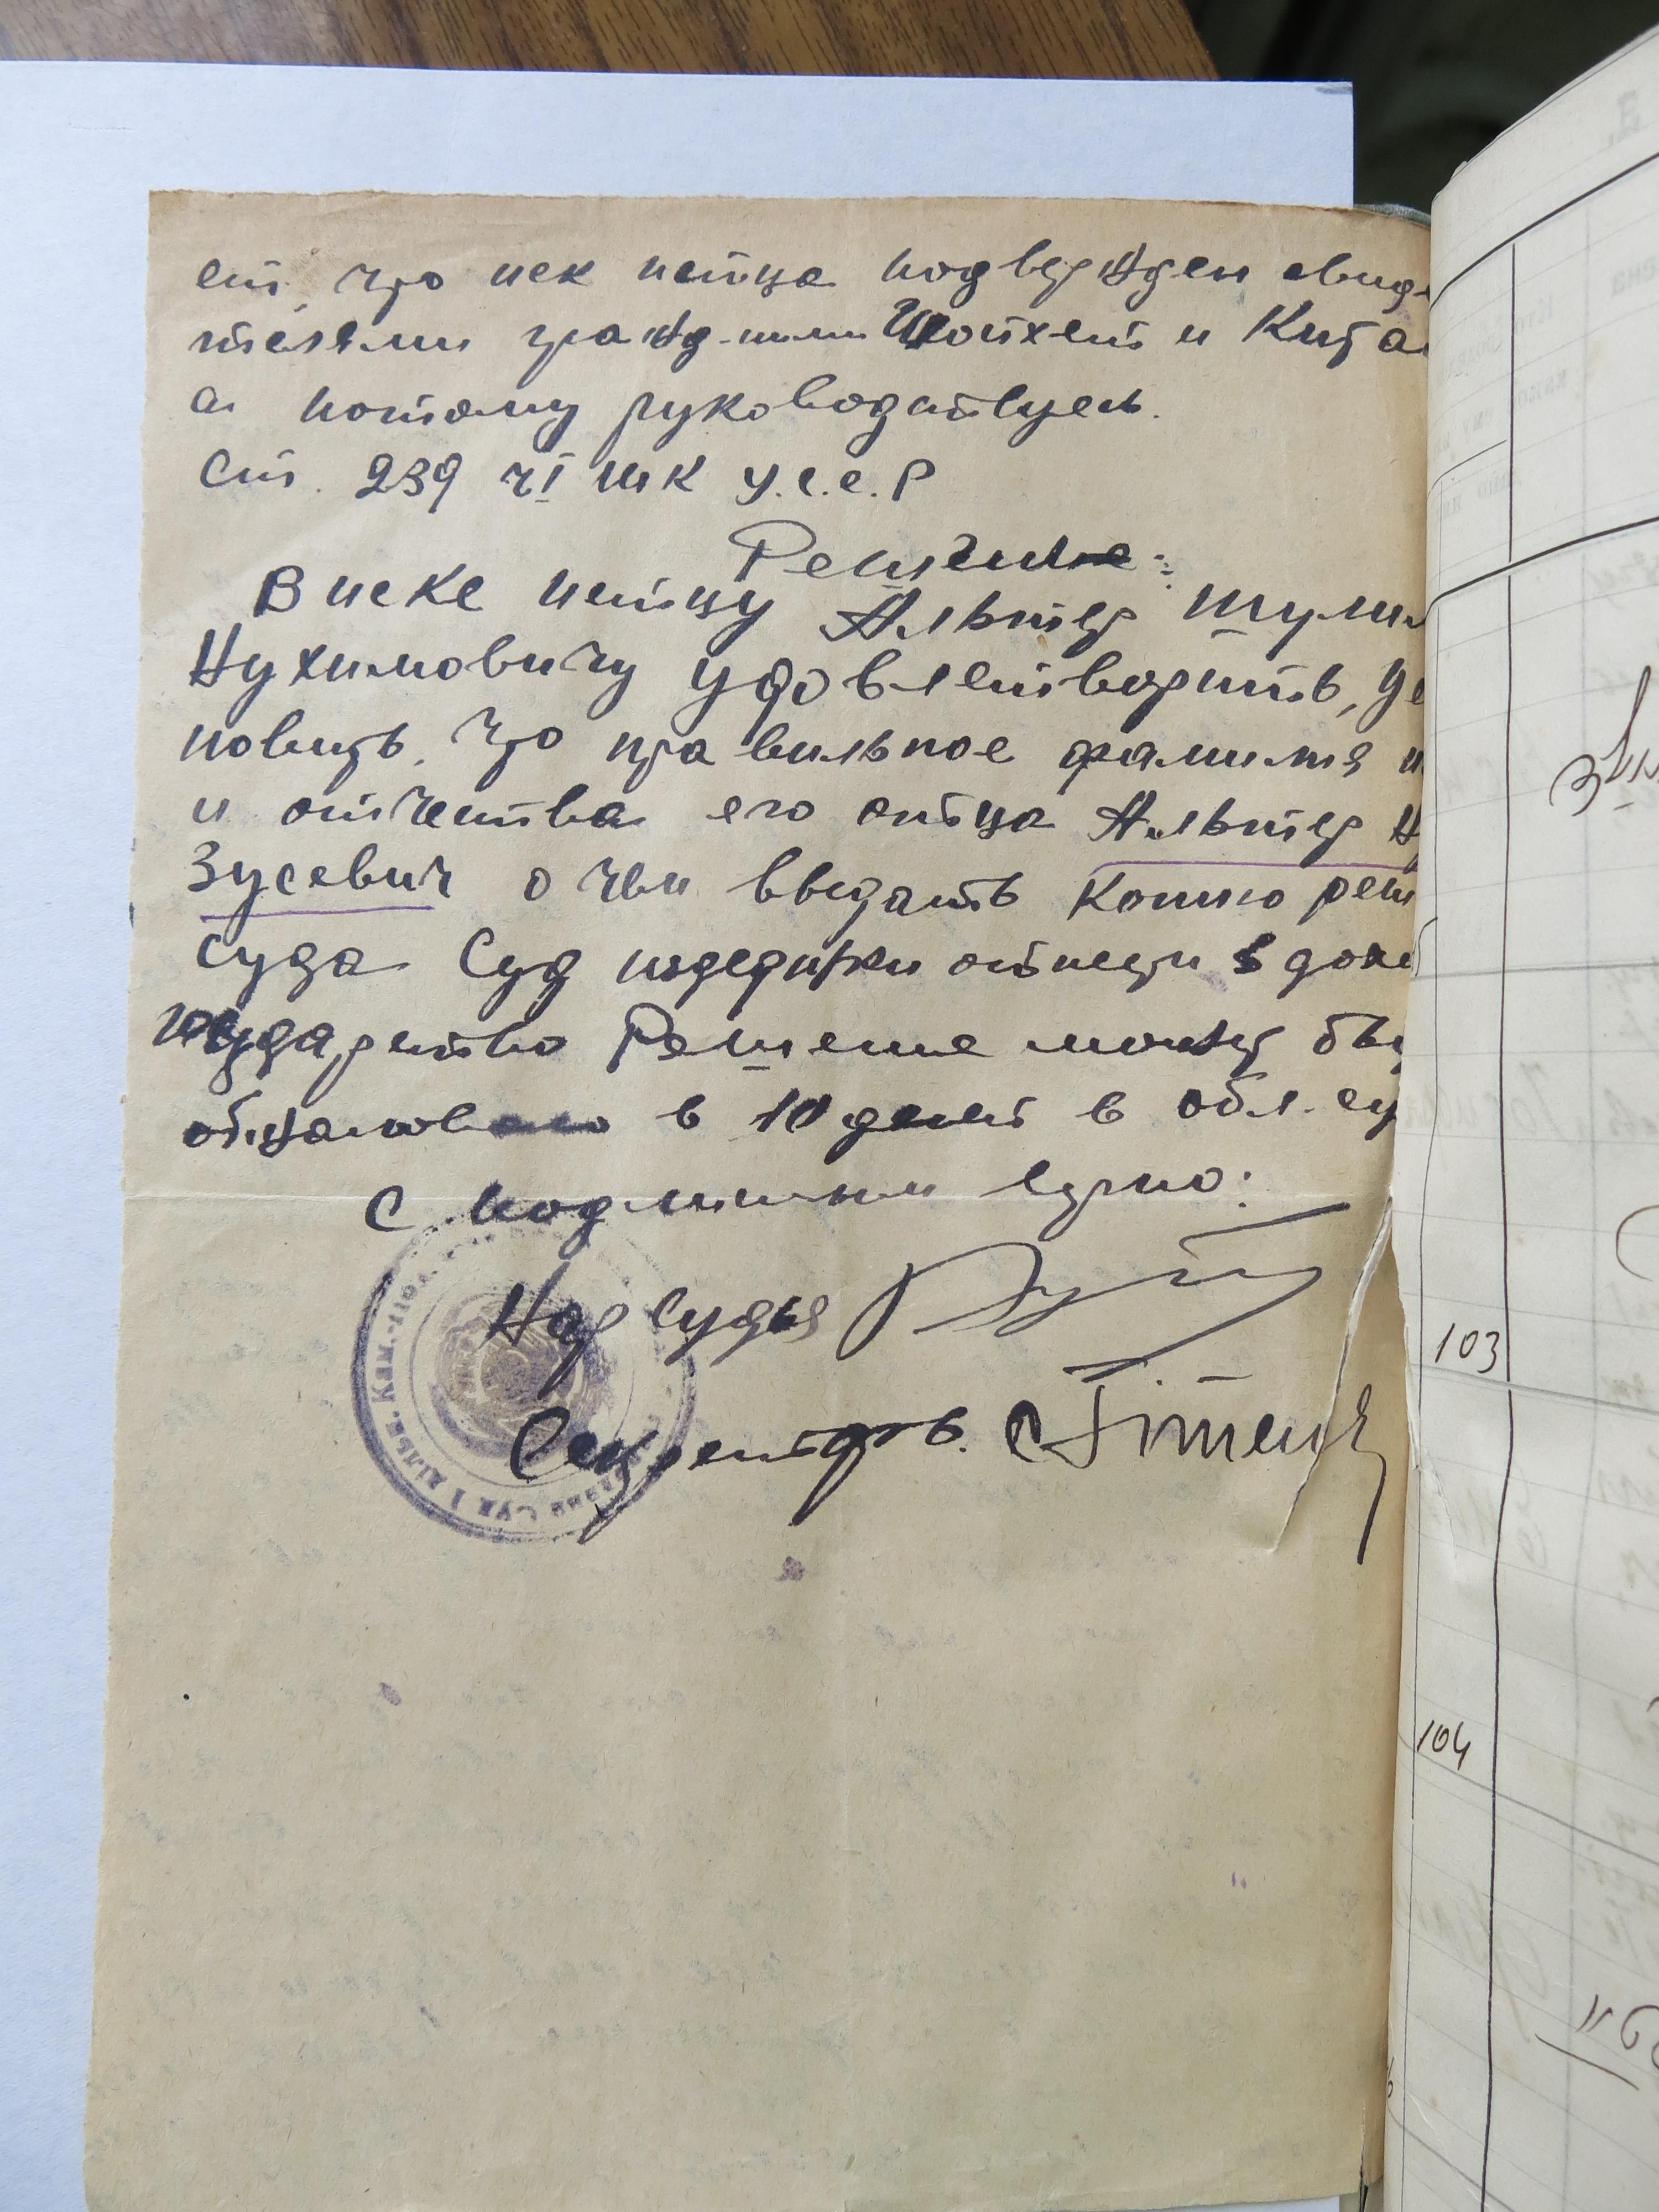 ет, что иск истца подвержден свиде
телями гражд-нами Шойхет и Кита
а потому руководствуесь.
Ст. 239 ч I У.С.С.Р
Решение:
В иске истцу Альтер Шулим
Нухимовичу удовлетворить, ус
новить, что правильное фамилия и
и отчества его отца Альтер Ну
Зусевич о чем выдать копию реш
суда Суд издержки отнести в дох
государство Решение может быт
обжаловано в 10 дней в обл. су
С подлинным верно:
Нар судья
Секретарь.
103
104